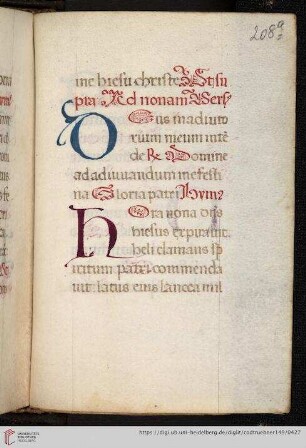 2089
ine hiesu christe Vt su
pra Ad nonam Vers9
Deus in adiuto
rium meum intē
de R. Domine
ad adiuuandum me festi
na Gloria patri Hymn9
Hora nona dn̄s
hiesus expirauit.
heli clamans sp
iritum patri commenda
uit. latus eius lancea mil
UNIVERSITÄTS-
BIBLIOTHEK
HEIDELBERG
https://digi.ub.uni-heidelberg.de/diglit/codtruebner149/0427